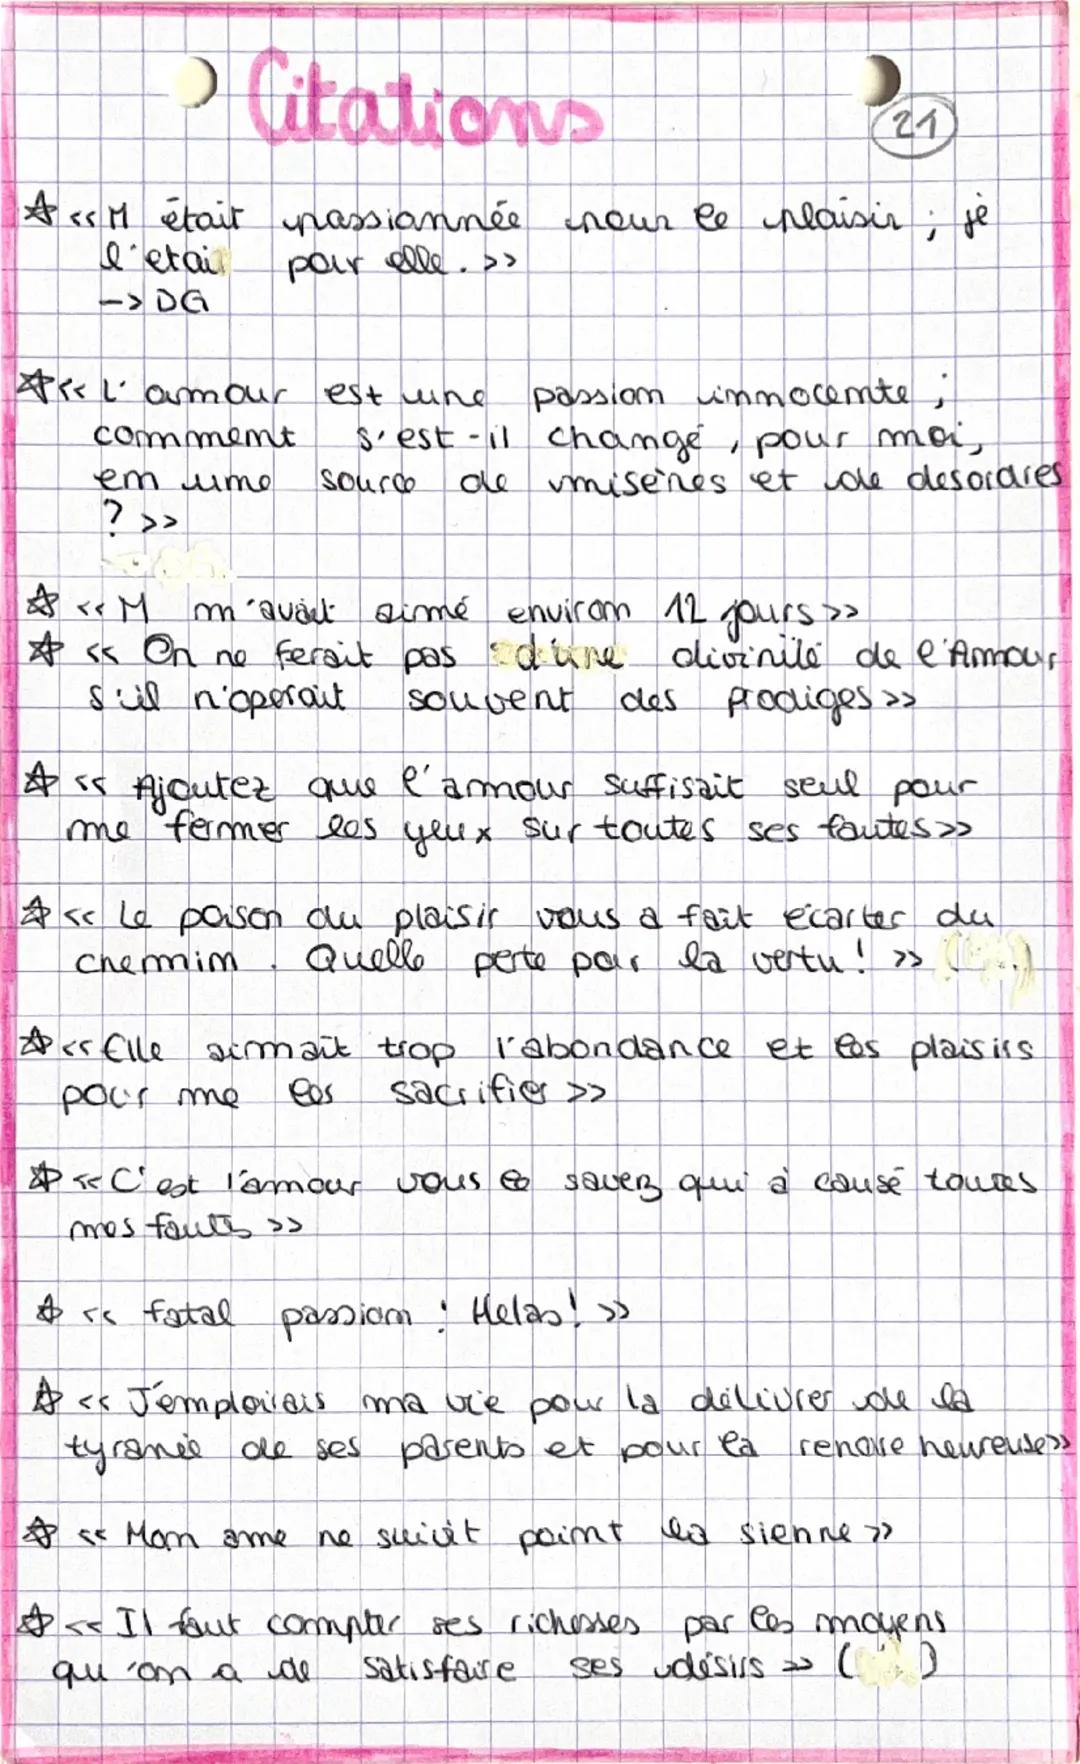 Citations
21
☆ << M était passionnée pour le plaisir ; je
l'etait pour elle. >>
-> DG
☆ << L'amour est une passion innocente ;
comment s'est-il changé, pour moi,
en une source de misères et de desordres
? >>
☆ << M m'avait aimé environ 12 jours >>
☆ << On ne ferait pas d'une divinité de l'Amour
s'il n'operait souvent des prodiges >>
☆ << Ajoutez que l'amour suffisait seul pour
me fermer les yeux sur toutes ses fautes >>
☆ << Le poison du plaisir vous a fait écarter du
chemin. Quelle perte pour la vertu ! >>
☆ << Elle aimait trop l'abondance et les plaisirs
pour me les sacrifier >>
☆ << C'est l'amour vous le savez qui a causé toutes
mes fautes >>
☆ << fatal passion ! Helas ! >>
☆ << J'emploirais ma vie pour la délivrer de la
tyranie de ses parents et pour la rendre heureuse >>
☆ << Mon ame ne suivit point la sienne >>
☆ << Il faut compter ses richesses par les moyens
qu'on a de satisfaire ses désirs >> ( )